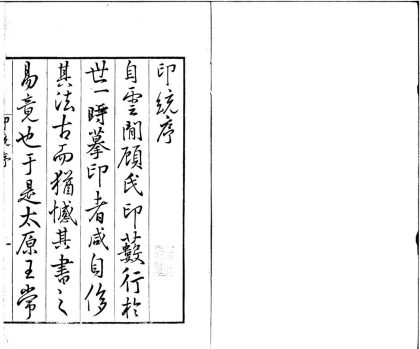 印統序
自雲閒顧氏印藪行於
世一時摹印者咸自侈
其法古而猶憾其書之
易竟也于是太原王常
印統序
一